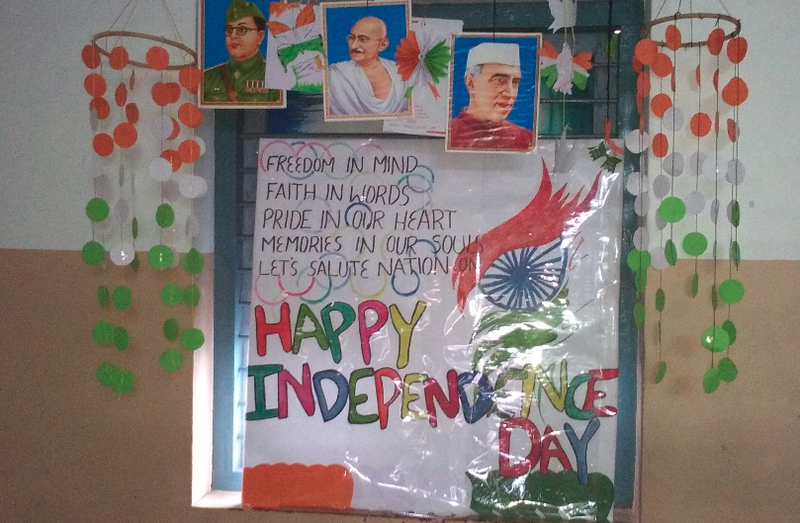 FREEDOM IN MIND
FAITH IN WORDS
PRIDE IN OUR HEART
MEMORIES IN OUR SOULS
LET'S SALUTE NATION ON
HAPPY
INDEPENDENCE
DAY